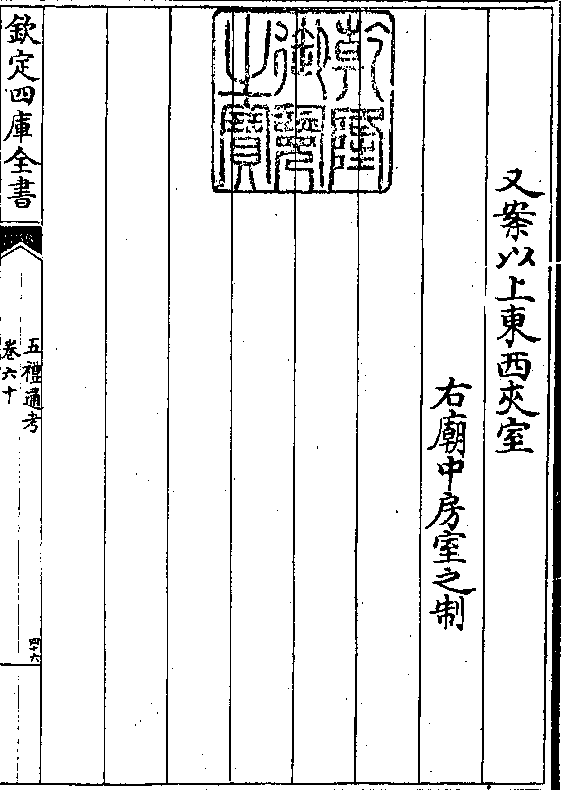 又案以上東西夾室
右廟中房室之制
乾隆御覽之寶
欽定四庫全書
五禮通考
卷六十
四十六